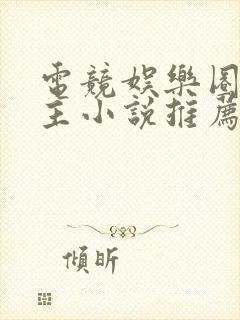 電競娛樂圈
主小說推薦
傾昕